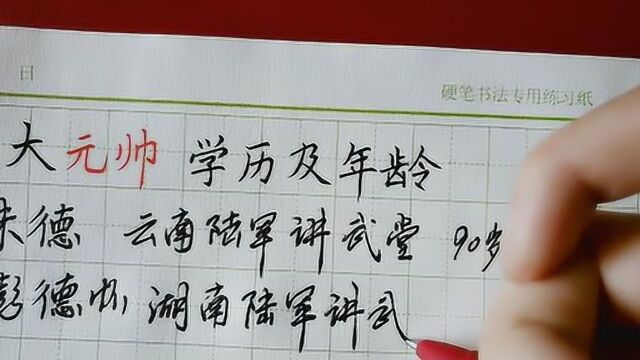 日
硬笔书法专用练习纸
大元帅 学历及年龄
朱德 云南陆军讲武堂 90岁
彭德怀 湖南陆军讲武